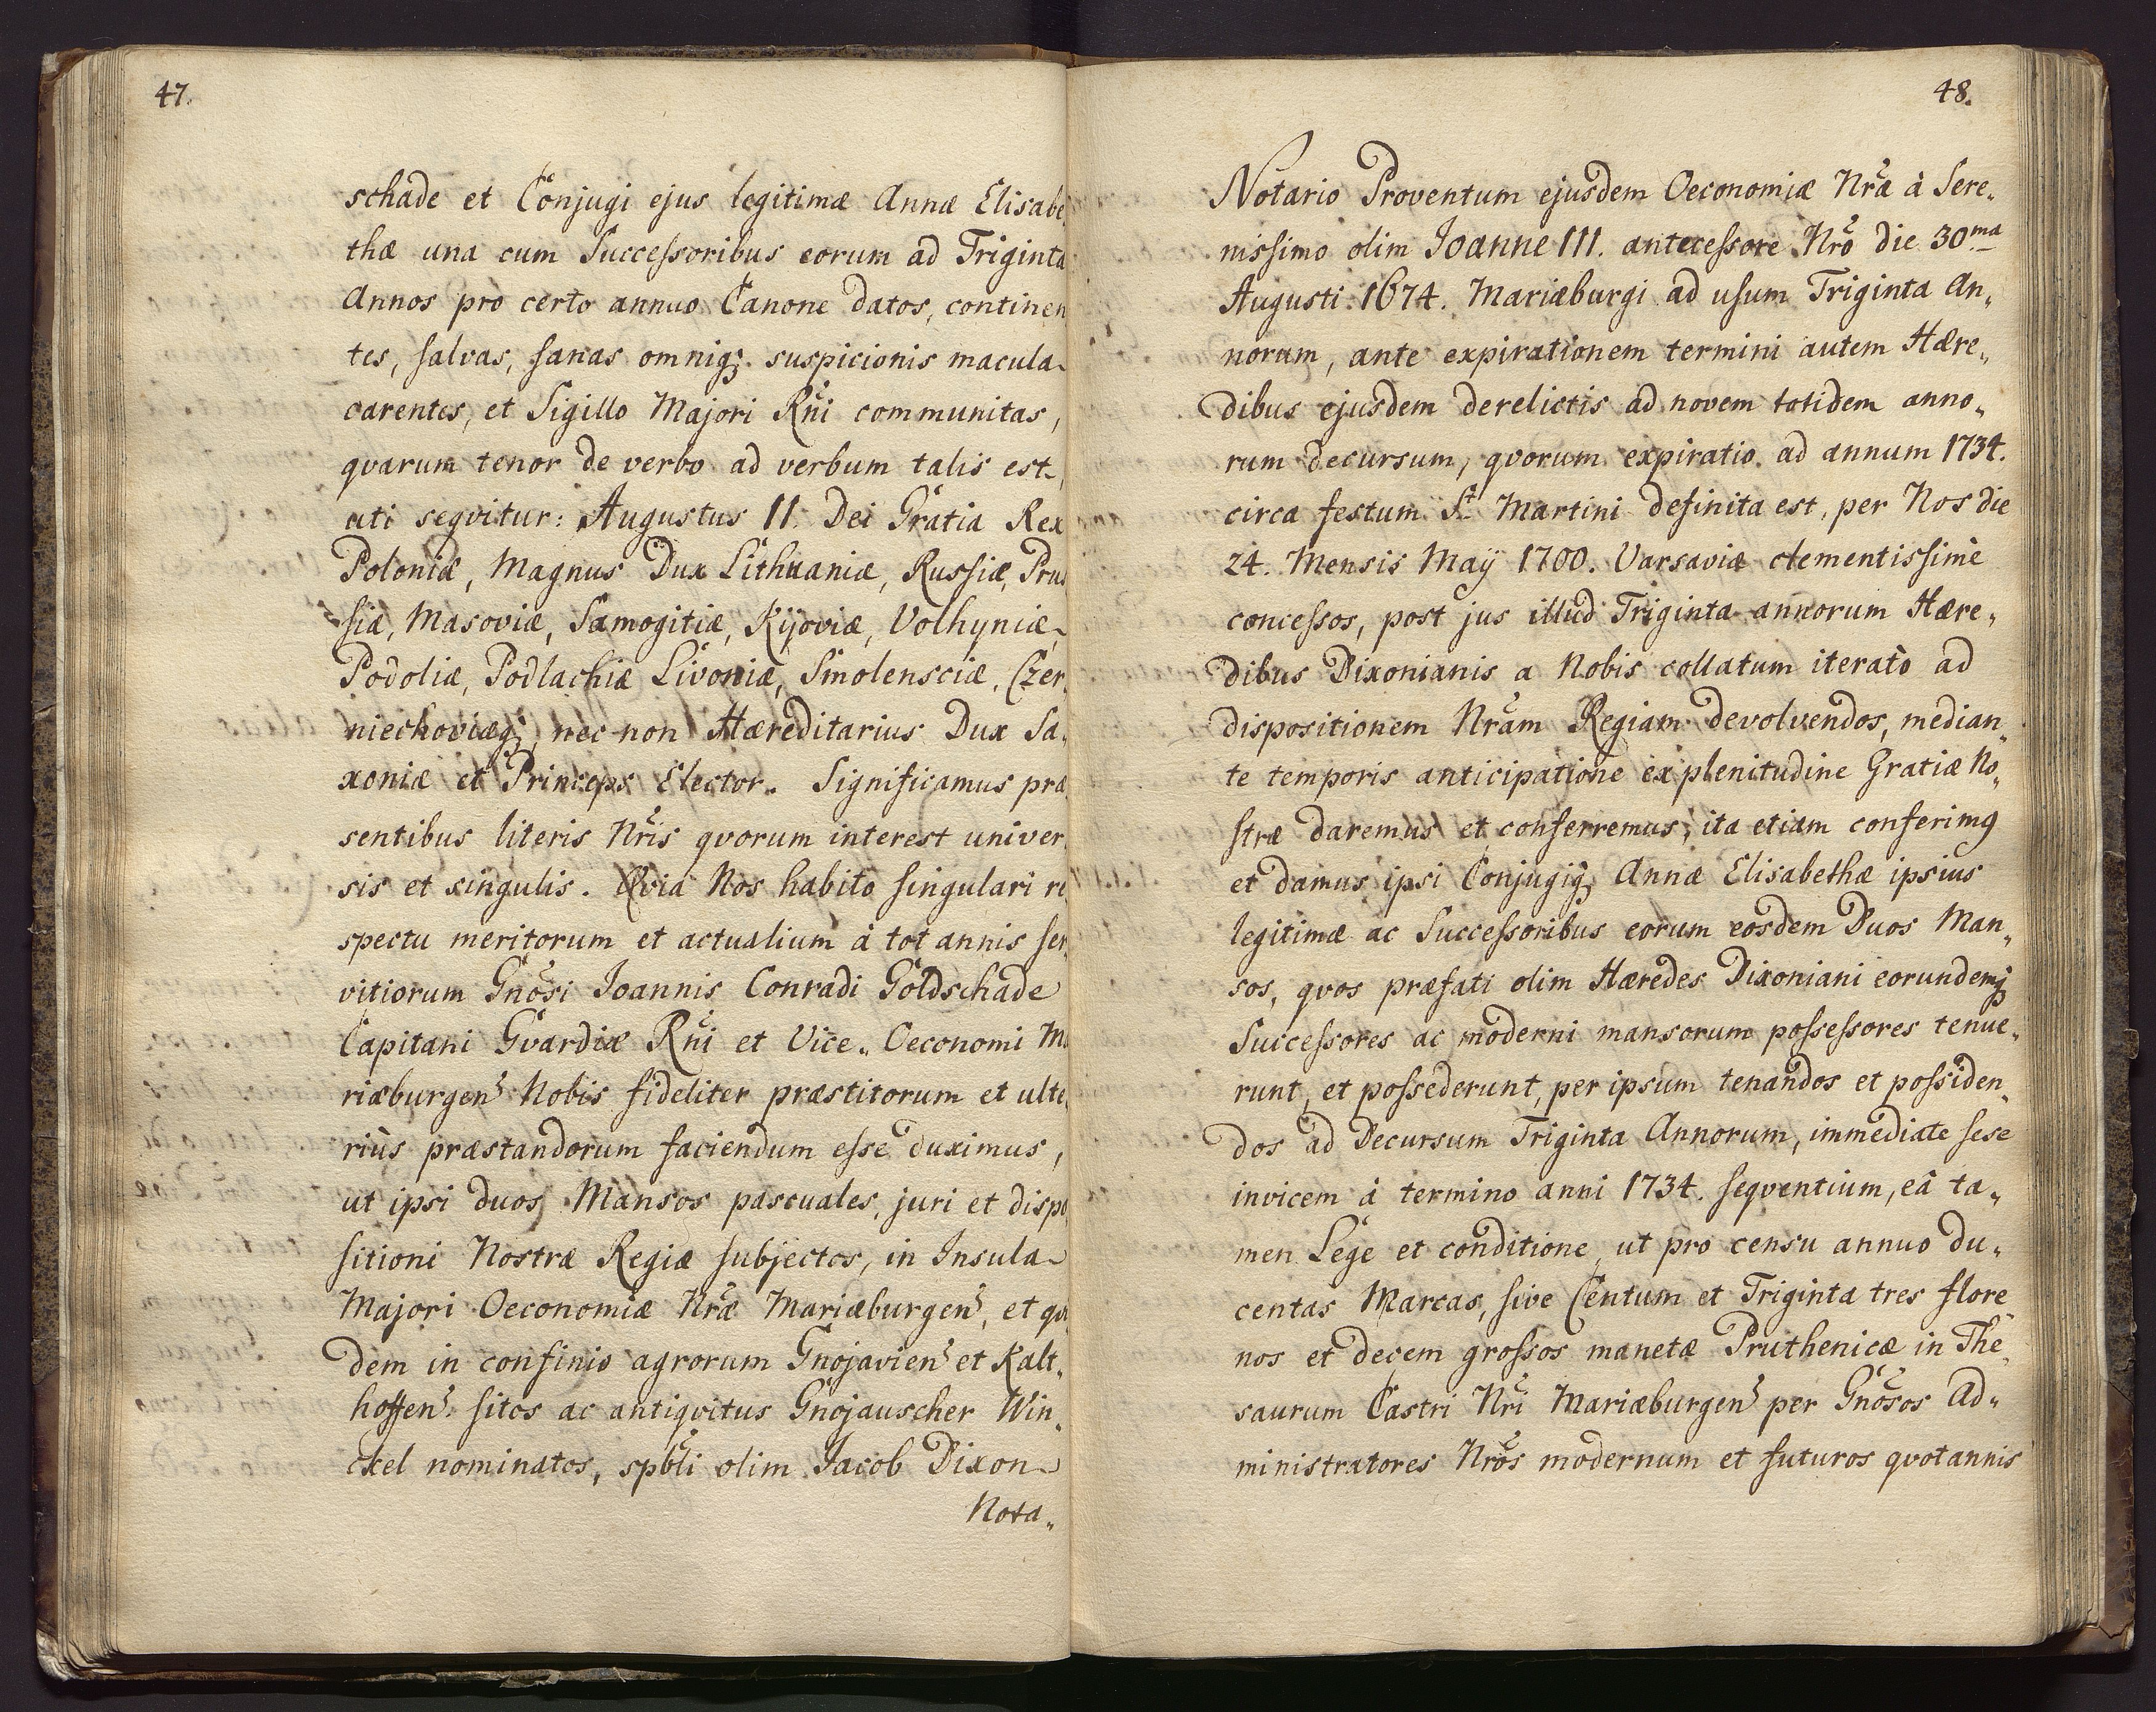 47.
schade et Conjugi ejus legitimæ Annæ Elisabe
thæ una cum Successoribus eorum ad Triginta
Annos pro certo annuo Canone datos, continen
tes, salvas, sanas omniq; suspicionis macula
carentes, et Sigillo Majori Rñi communitas,
qvarum tenor de verbo ad verbum talis est,
uti seqvitur: Augustus II. Dei Gratia Rex
Poloniæ, Magnus Dux Lithuaniæ, Russiæ, Prus
siæ, Masoviæ, Samogitiæ, Kijoviæ, Volhyniæ
Podoliæ, Podlachiæ Livoniæ, Smolensciæ, Czer„
niechoviæq;, nec non Hæreditarius Dux Sa„
xoniæ et Princeps Elector. Significamus præ
sentibus literis Nr̃is qvorum interest univer
sis et singulis. Qvia Nos habito singulari re
spectu meritorum et actualium à tot annis ser
vitiorum Gnõsi Joannis Conradi Goldschade
Capitani Gvardiæ Rñi et Vice„ Oeconomi Ma
riæburgen̄ Nobis fideliter præstitorum et ulte
riùs præstandorum faciendum esse duximus,
ut ipsi duos Mansos pascuales, juri et dispo
sitioni Nostræ Regiæ subjectos, in Insula
Majori Oeconomiæ Nr̃æ Mariæburgen̄, et qvi
dem in confinio agrorum Gnojavien̄ et Kalt„
hoffen̄. sitos ac antiqvitus Gnojauscher Win„
ckel nominatos, spbl̃i olim Jacob Dixon
Nota„
48.
Notario Proventum ejusdem Oeconomiæ Nr̃æ à Sere„
nissimo olim Joanne III. antecessore Nr̃o die 30ma
Augusti 1674. Mariæburgi ad usum Triginta An„
norum, ante expirationem termini autem Hære„
dibus ejusdem derelictis ad novem totidem anno„
rum decursum, qvorum expiratio ad annum 1734.
circa festum St Martini definita est, per Nos die
24. Mensis Maÿ 1700. Varsaviæ clementissimè
concessos, post jus illud Triginta annorum Hære„
dibus Dixonianis a Nobis collatum iteratò ad
dispositionem Nr̃am Regiam devolvendos, median„
te temporis anticipatione ex plenitudine Gratiæ No„
stræ daremus et conferremus; ita etiam conferimꝰ
et damus ipsi Conjugiq; Annæ Elisabethæ ipsius
legitimæ ac Successoribus eorum eosdem Duos Man„
sos, qvos præfati olim Hæredes Dixoniani eorundemq;
Successores ac moderni mansorum possessores tenue„
runt, et possederunt, per ipsum tenandos et possiden„
dos ad Decursum Triginta Annorum, immediate sese
invicem à termino anni 1734. seqventium, eâ ta„
men Lege et conditione, ut pro censu annuo du„
centas Marcas, sive Centum et Triginta tres flore„
nos et decem grossos manetæ Pruthenicæ in The„
saurum Castri Nr̃i Mariæburgen̄ per Gnõsos Ad„
ministratores Nr̃os modernum et futuros qvotannis